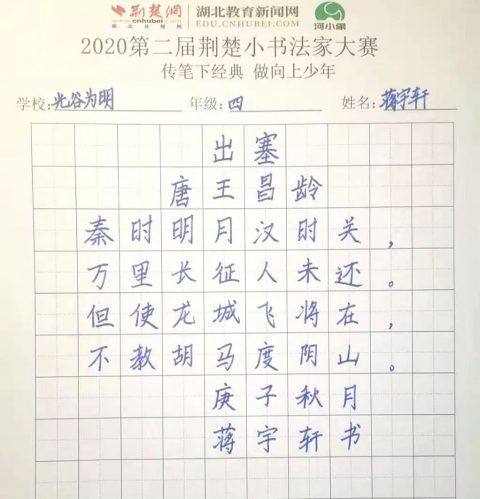 荆楚网
www.cnhubei.com
湖北教育新闻网
EDU.CNHUBEI.COM
河小象
2020第二届荆楚小书法家大赛
传笔下经典 做向上少年
学校:光谷为明 年级:四 姓名:蒋宇轩
出塞
唐王昌龄
秦时明月汉时关,
万里长征人未还。
但使龙城飞将在,
不教胡马度阴山。
庚子秋月
蒋宇轩书